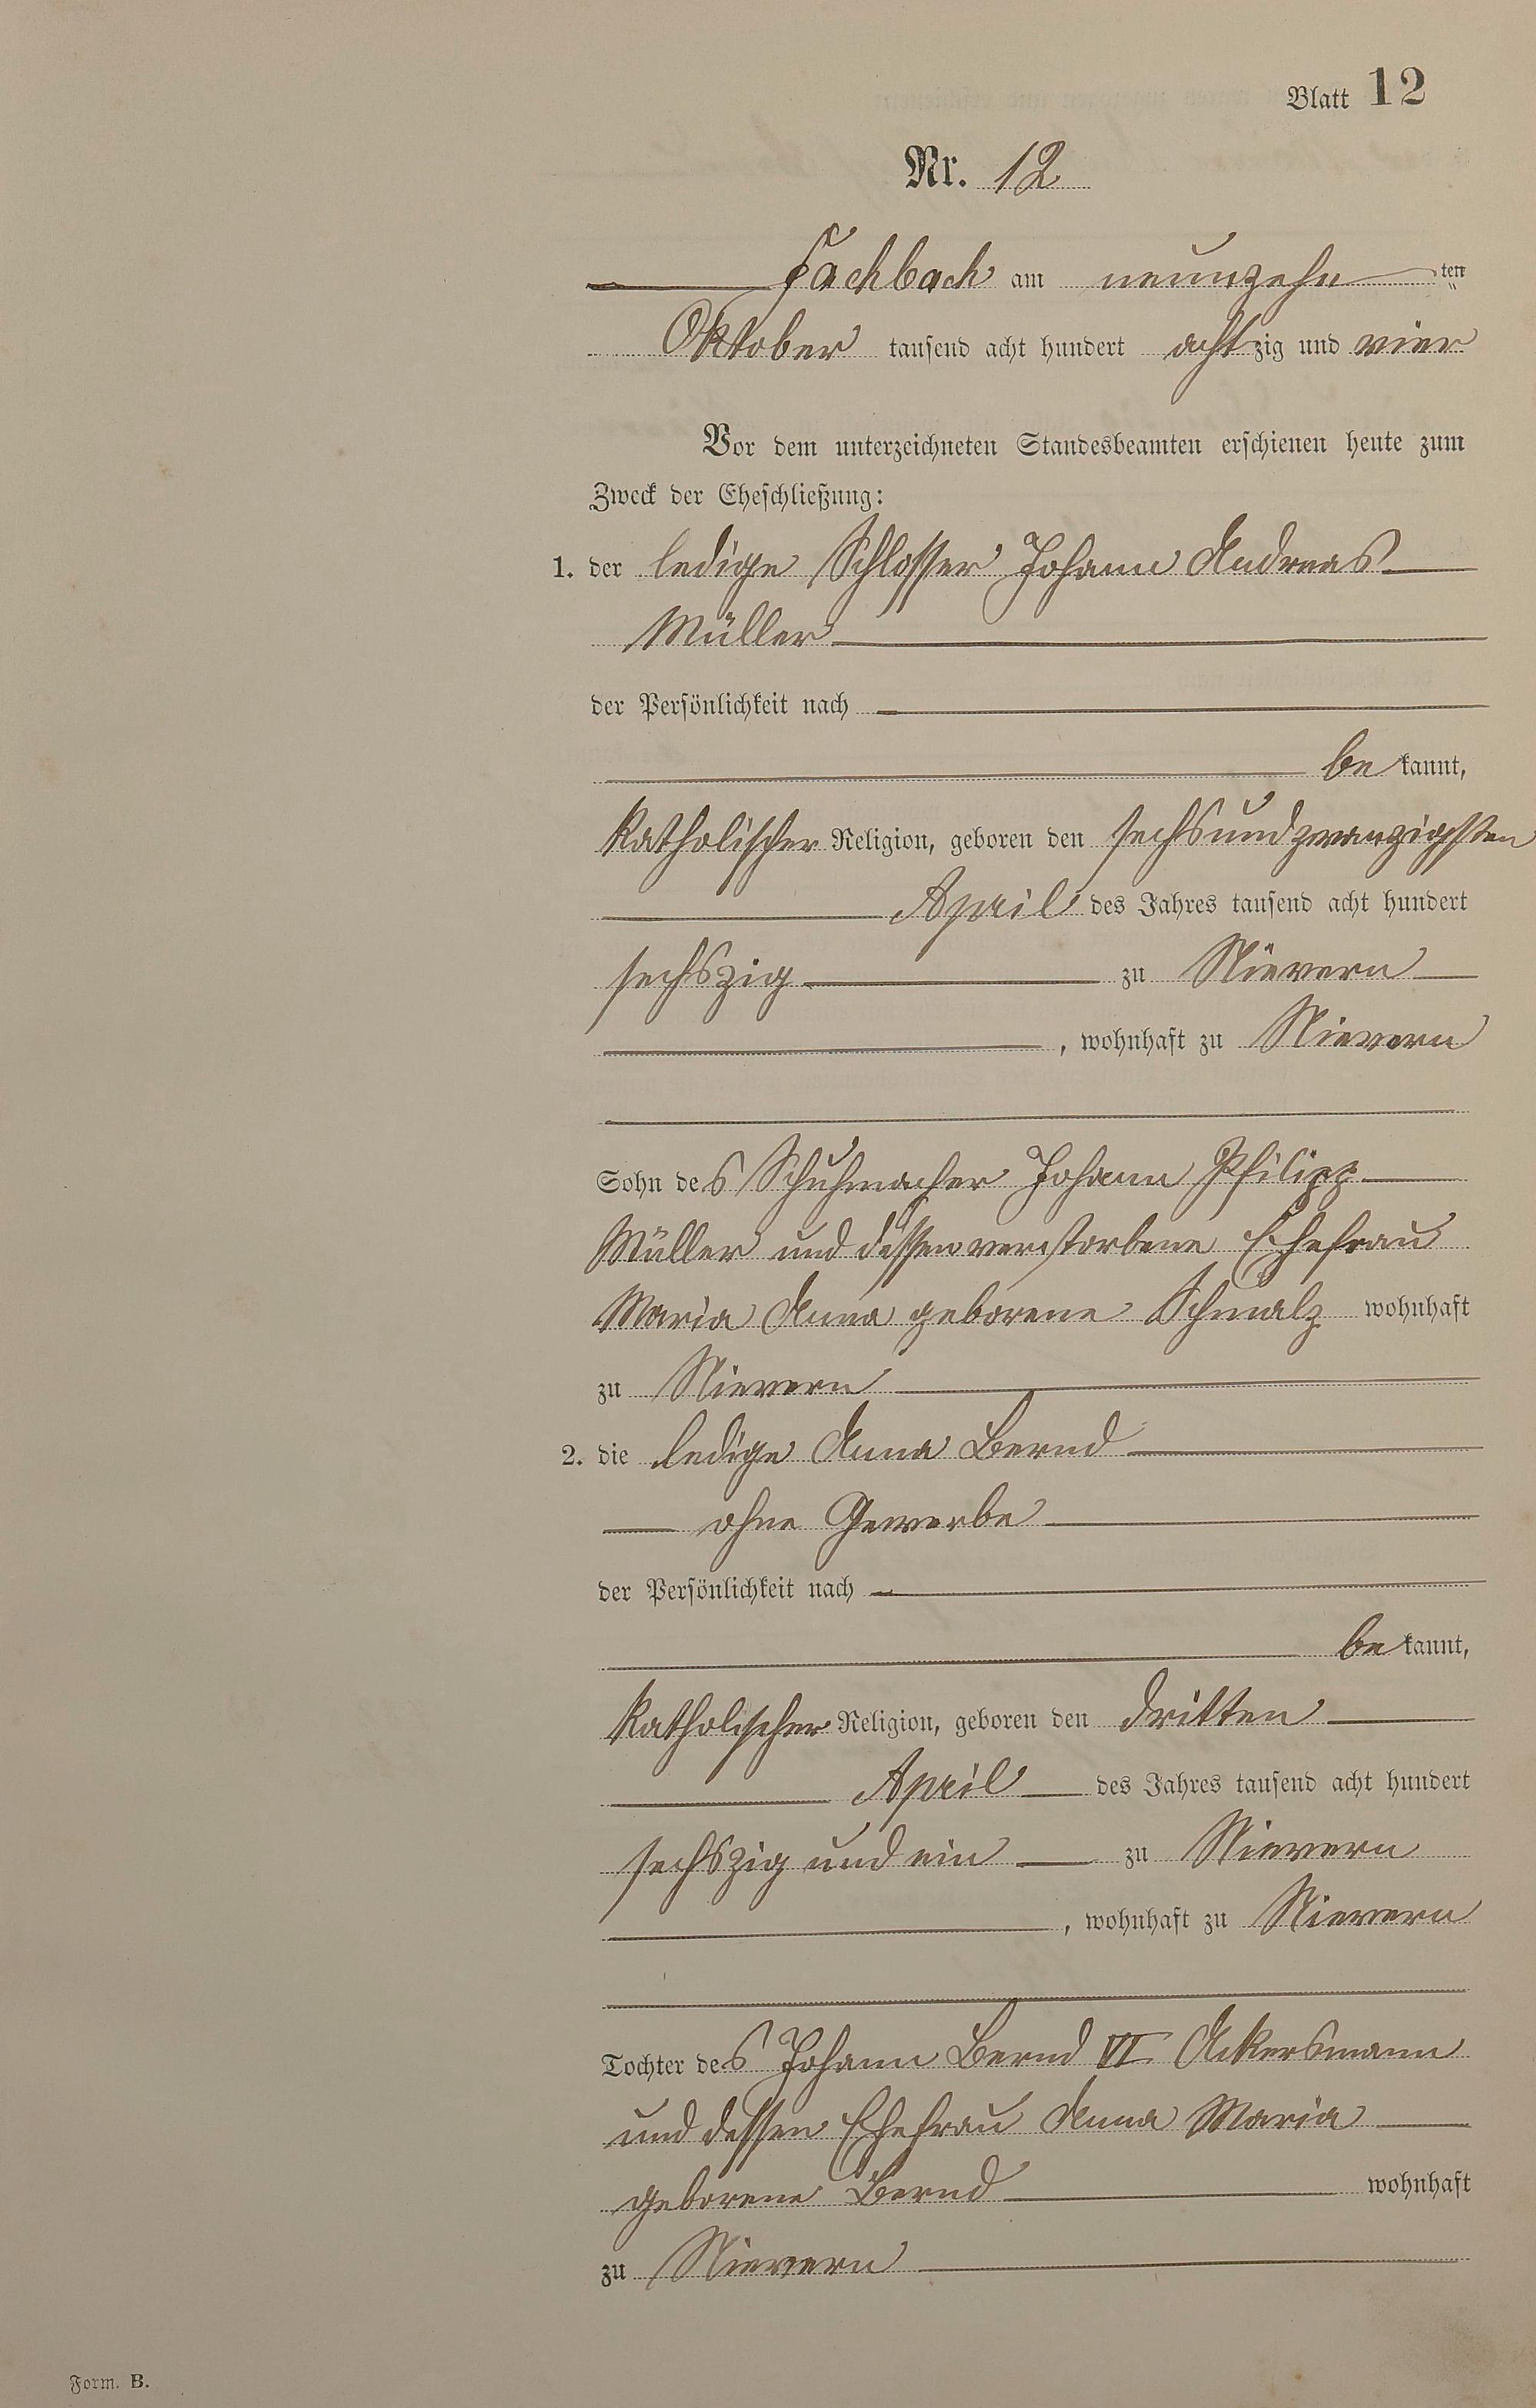 Blatt 12
Nr. 12
Fachbach am neunzehn ten
Oktober tausend acht hundert achtzig und vier
Vor dem unterzeichneten Standesbeamten erschienen heute zum
Zweck der Eheschließung:
1. der ledige Schlosser Johann Andreas
Müller
der Persönlichkeit nach
be kannt,
katholischer Religion, geboren den sechsundzwanzigsten
April des Jahres tausend acht hundert
sechszig zu Nievern
, wohnhaft zu Nievern
Sohn des Schuhmacher Johann Philipp
Müller und dessen verstorbene Ehefrau
Maria Anna geborene Schmalz wohnhaft
zu Nievern
2. die ledige Anna Bernd
ohne Gewerbe
der Persönlichkeit nach
be kannt,
katholischer Religion, geboren den dritten
April des Jahres tausend acht hundert
sechszig und ein zu Nievern
, wohnhaft zu Nievern
Tochter des Johann Bernd VI Ackersmann
und dessen Ehefrau Anna Maria
geborene Bernd wohnhaft
zu Nievern
Form. B.